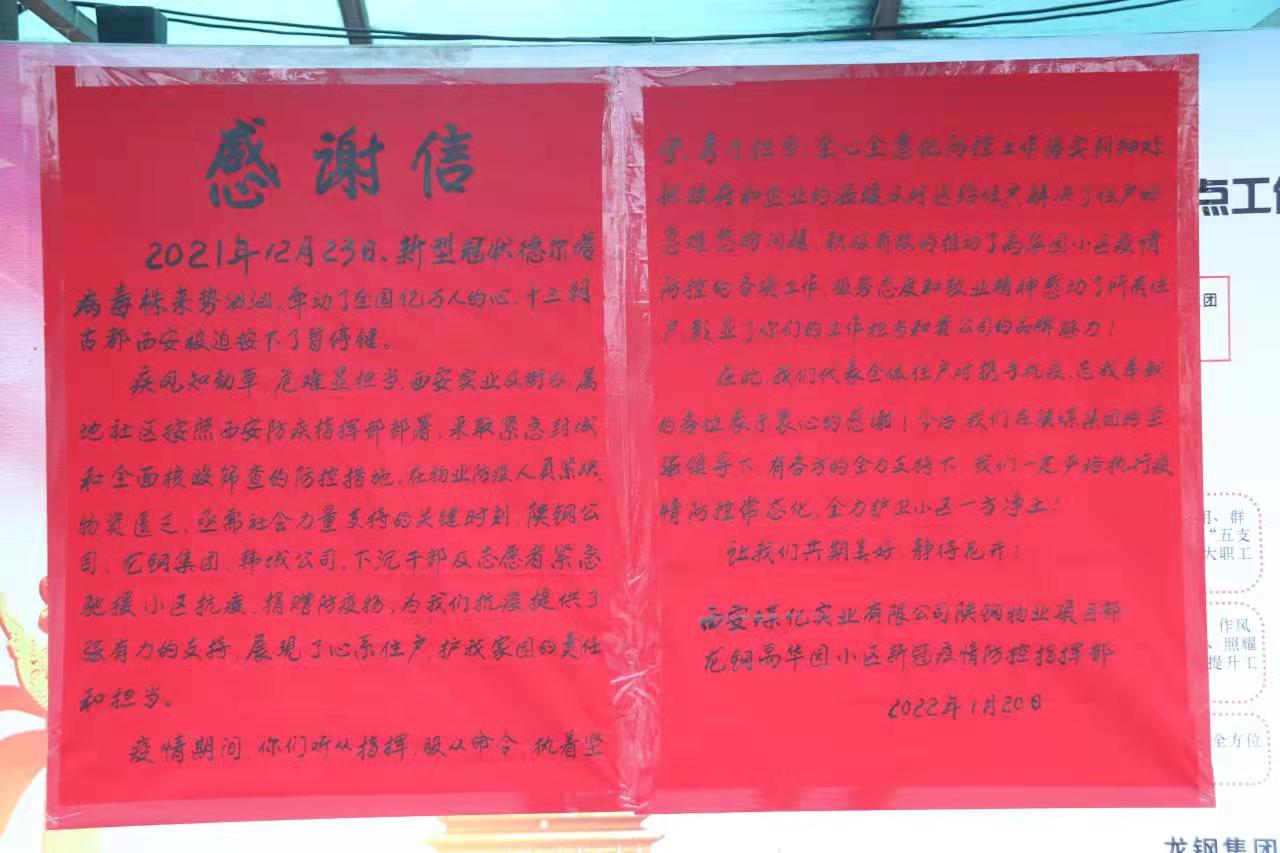 感谢信
2021年12月23日、新型冠状德尔塔
病毒株来势汹汹,牵动了全国亿万人的心,十三朝
古都西安被迫按下了暂停键。
疾风知劲草,危难显担当,西安实业及街办,属
地社区按照西安防疾指挥部部署,采取紧急封城
和全面核酸筛查的防控措施,在物业防疫人员紧缺,
物资匮乏,亟需社会力量支持的关键时刻,陕钢公
司、龙钢集团、韩城公司,下沉干部及志愿者紧急
驰援小区抗疫,捐赠防疫物,为我们抗疫提供了
强有力的支持,展现了心系住户,护我家园的责任
和担当。
疫情期间,你们听从指挥,服从命令,执着坚
守,勇于担当,全心全意把防控工作落实到细处,
把政府和企业的温暖及时送给住户,解决了住户
急难愁盼问题,积极有效的推动了高华园小区疫情
防控的各项工作,服务态度和敬业精神感动了所有住
户,彰显了你们的工作担当和贵公司的品牌魅力!
在此,我们代表全体住户对携手抗疫、忘我奉献
的各位表于衷心的感谢!今后,我们在陕煤集团的坚
强领导下,有各方的全力支持下,我们一定严格执行疫
情防控常态化,全力护卫小区一方净土!
让我们共期美好 静待花开!
西安煤化实业有限公司陕钢物业项目部
龙钢高华园小区新冠疫情防控指挥部
2022年1月20日
点工
团
、群
“五支
大职工
作风
、照耀
提升工
全方位
龙钢集团